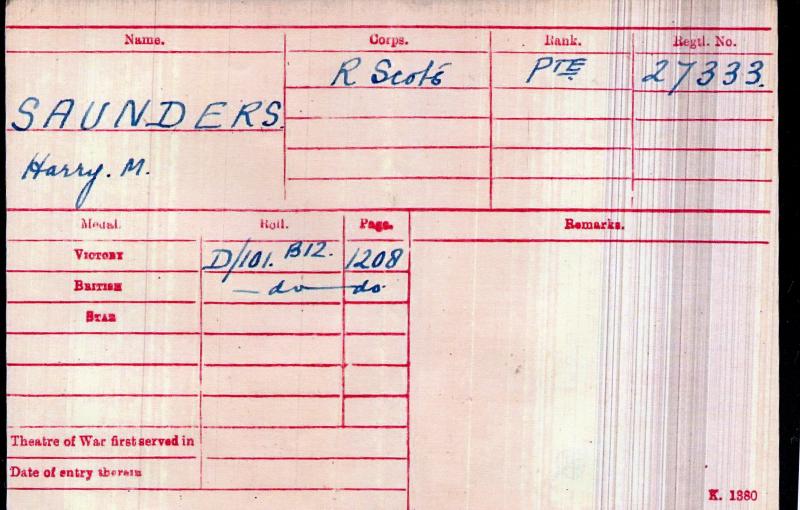 Name. Corps. Rank. Regtl. No.
R Scots PTE 27333.
SAUNDERS.
Harry. M.
Medal. Roll. Page. Remarks.
VICTORY D/101. B12. 1208
BRITISH — do — do.
STAR
Theatre of War first served in
Date of entry therein
K. 1380